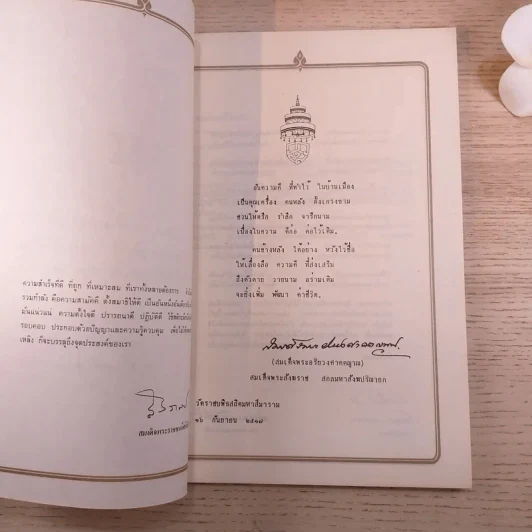 ความสำเร็จที่ดี ที่ถูก ที่เหมาะสม ที่เราทั้งหลายต้องการ
รวมกำลัง คือความสามัคคี ตั้งสมาธิให้ดี เป็นอันหนึ่งอันเดียว
มั่นแน่วแน่ ความตั้งใจดี ปรารถนาดี ปฏิบัติดี
รอบคอบ ประกอบด้วยปัญญาและความรู้ควบคุม
หลัง ก็จะบรรลุถึงจุดประสงค์ของเรา
สมเด็จพระราช
อันความดี ที่ทำไว้ ในบ้านเมือง
เป็นคุณเครื่อง คนหลัง ตั้งเกรงขาม
ชวนให้ตรึก รำลึก จารึกนาม
เนื่องในความ ดีก่อ ต่อไว้เดิม.
คนข้างหลัง ได้อย่าง หวังไว้ชื่อ
ให้เลื่องลือ ความดี ที่ส่งเสริม
ถึงตัวตาย วายนาม อร่ามเดิม
จะยิ่งเพิ่ม พัฒนา ค่าชีวิต.
(สมเด็จพระอริยวงศาคตญาณ)
สมเด็จพระสังฆราช สกลมหาสังฆปริณายก
วัดราชบพิธสถิตมหาสีมาราม
๑๖ กันยายน ๒๕๑๗